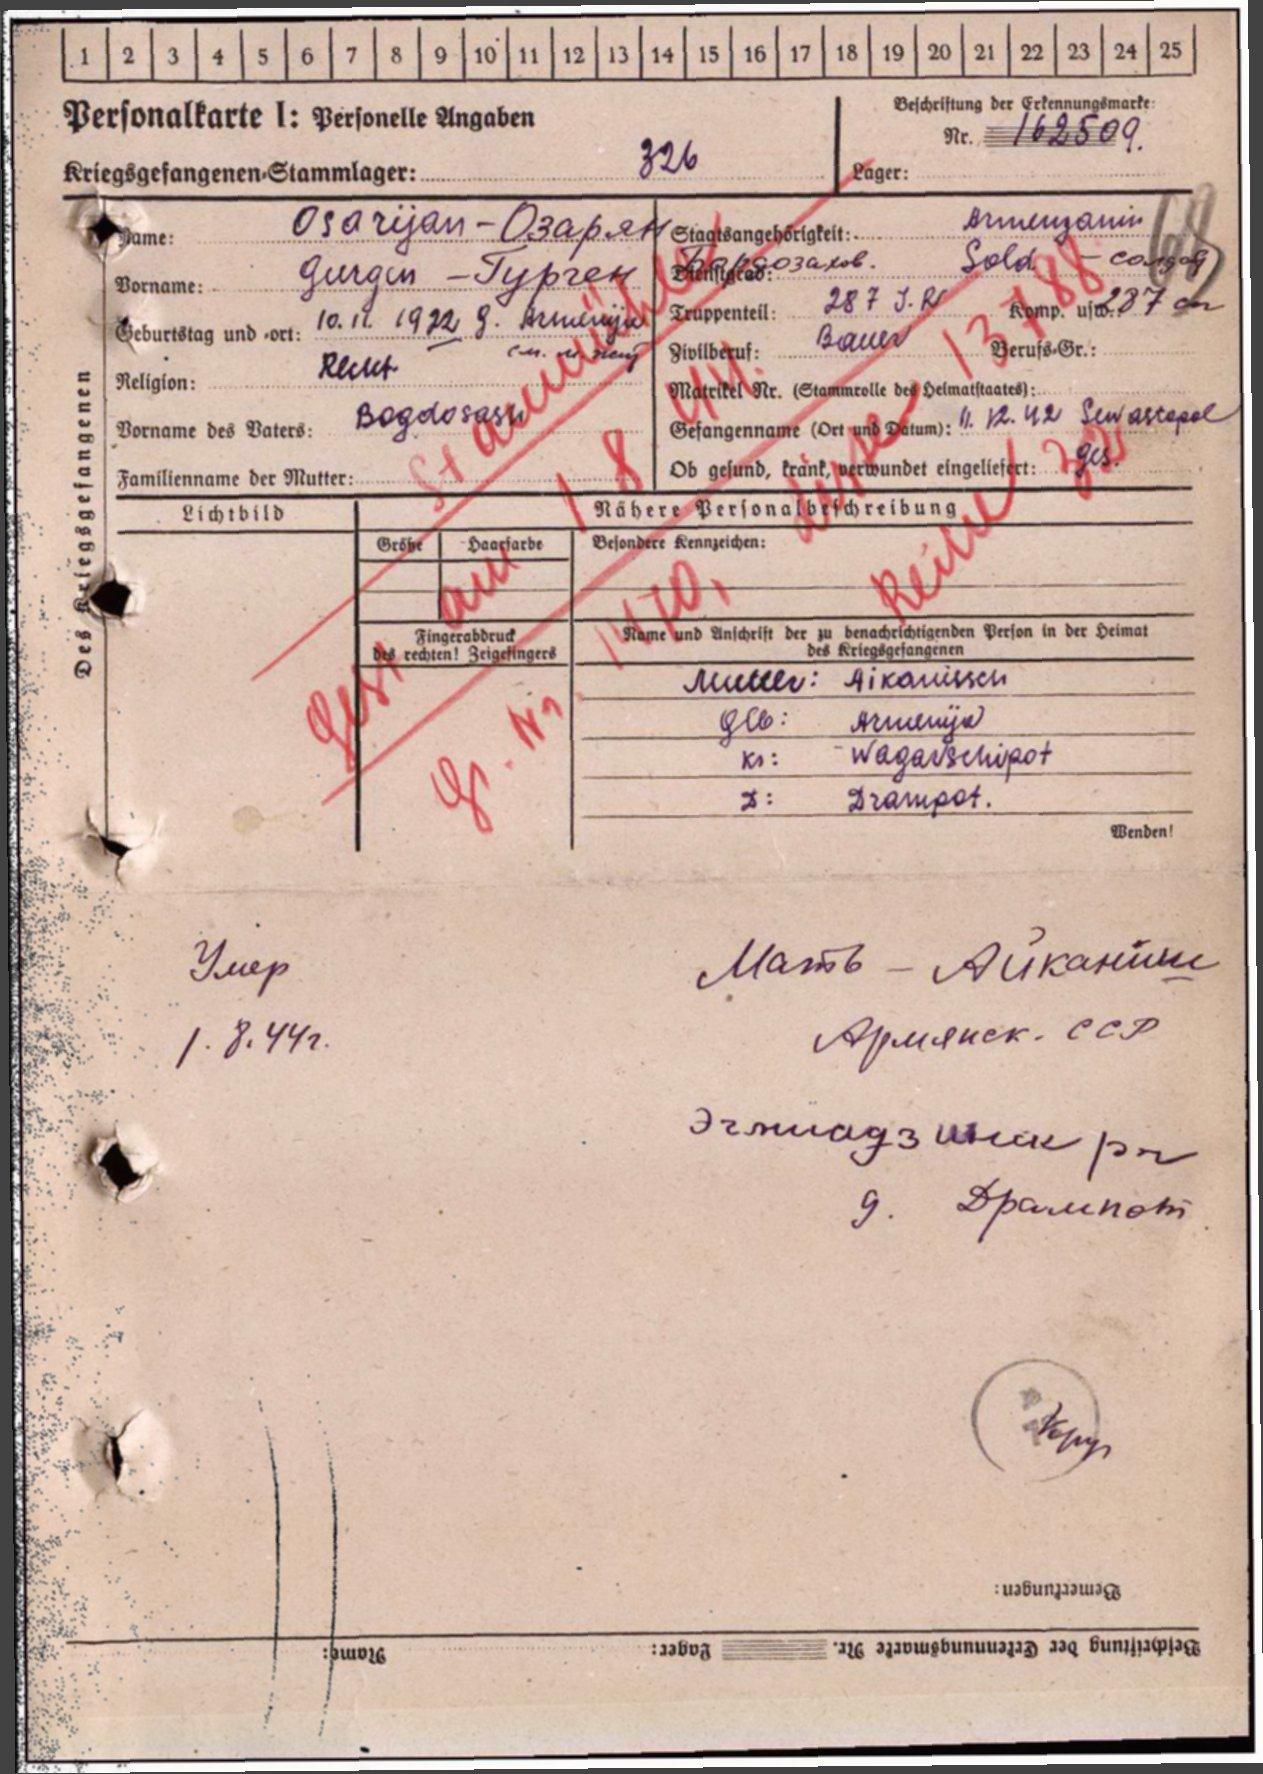 1 2 3 4 5 6 7 8 9 10 11 12 13 14 15 16 17 18 19 20 21 22 23 24 25
Personalkarte I: Personelle Angaben
Beschriftung der Erkennungsmarke:
Nr. 162509.
Kriegsgefangenen-Stammlager: 326
Lager:
Des Kriegsgefangenen
Name: Osarijan - Озарян
Vorname: Gurgen - Гурген
Geburtstag und -ort: 10. 11. 1922 g. Armenija
Religion:
Vorname des Vaters: Bogdosasn
Familienname der Mutter:
Staatsangehörigkeit: Armenzanin
Dienstgrad: Sold. - солдат
Truppenteil: 287 J.R Komp. usw. 287 сп
Zivilberuf: Bauer Berufs-Gr.:
Matrikel Nr. (Stammrolle des Heimatstaates):
Gefangenname (Ort und Datum): 11. 12. 42 Sewastopol
Ob gesund, krank, verwundet eingeliefert: ges.
Lichtbild
Nähere Personalbeschreibung
Größe Haarfarbe Besondere Kennzeichen:
Fingerabdruck
des rechten! Zeigefingers
Name und Anschrift der zu benachrichtigenden Person in der Heimat
des Kriegsgefangenen
Mutter: Aikanisch
Glb: Armenija
Kr: Wagarschipot
D: Drampot.
Wenden!
Gest am 1 8 44.
Gr. Nr 1470,
Reihe
Умер
1. 8. 44г.
Мать - Айканиш
Армянск. ССР
Эчмиадзинск р-н
д. Дрампот
Bemerkungen:
Beschriftung der Erkennungsmarke Nr. Lager: Name: